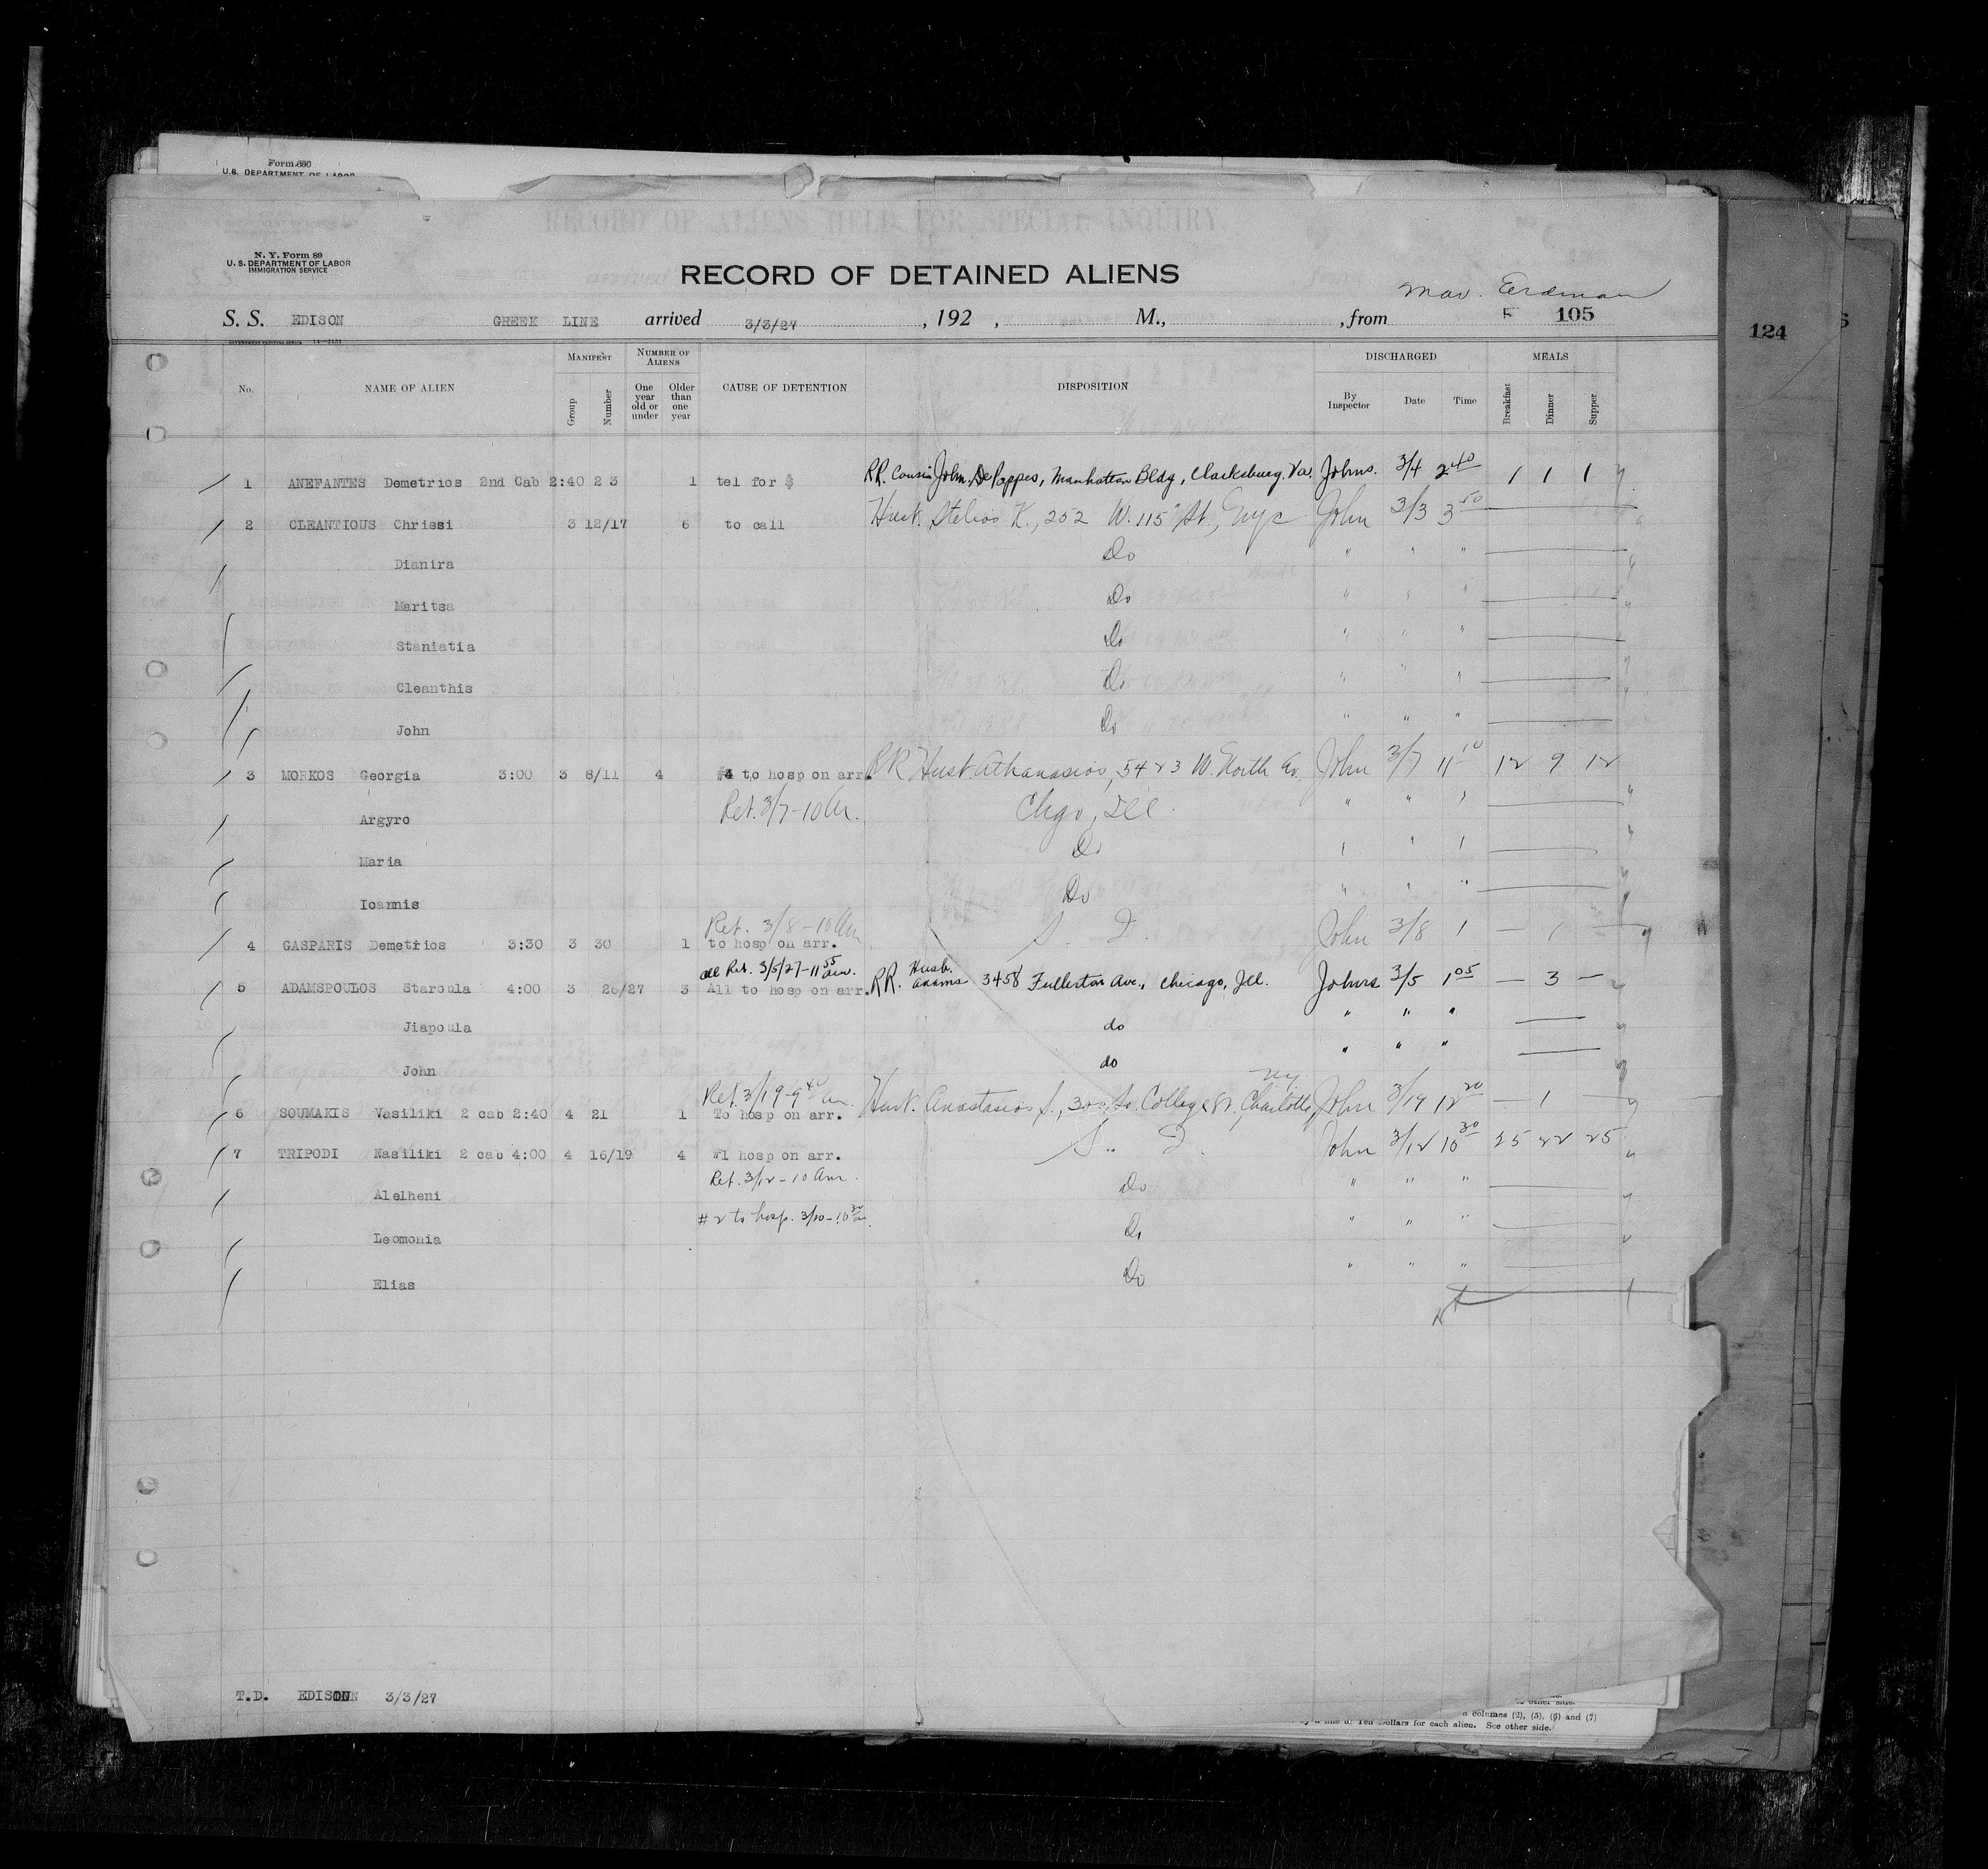 Form 690
U.S. DEPARTMENT OF LABOR
RECORD OF ALIENS HELD FOR SPECIAL INQUIRY.
N. Y. Form 89
U. S. DEPARTMENT OF LABOR
IMMIGRATION SERVICE
RECORD OF DETAINED ALIENS
Erdman
S. S. EDISON GREEK LINE arrived 3/3/27 , 192 , M., , from 105
124
No. NAME OF ALIEN MANIFEST Group Number NUMBER OF ALIENS One year old or under Older than one year CAUSE OF DETENTION DISPOSITION DISCHARGED By Inspector Date Time MEALS Breakfast Dinner Supper
1 ANEFANTES Demetrios 2nd Cab 2:40 2 3 1 tel for $ RR. Cousin John DePappos, Manhattan Bldg, Clarksburg, Va. Johns. 3/4 2 40 1 1 1
2 CLEANTIOUS Chrissi 3 12/17 6 to call Husb. Stelios K., 252 W. 115" St., Nyc John 3/3 3 50
Dianira Do " " "
Maritsa Do " " "
Staniatia Do " " "
Cleanthis Do " " "
John Do " " "
3 MORKOS Georgia 3:00 3 8/11 4 #4 to hosp on arr. RR Husb. Athanasios, 5423 W. North Av. John 3/7 11 10 12 9 12
Argyro Ret. 3/7-10 Am. Chgo, Ill. " " "
Maria Do " " "
Ioannis Do " " "
Ret. 3/8-10 Am
4 GASPARIS Demetrios 3:30 3 30 1 to hosp on arr. S. I. John 3/8 1 — 1 —
all Ret. 3/5/27-11 55 am. Husb.
5 ADAMSPOULOS Staroula 4:00 3 26/27 3 All to hosp on arr. RR. Adams 3458 Fullerton Ave., Chicago, Ill. Johns 3/5 1 05 — 3 —
Jiapoula do " " "
John do " " "
Ret. 3/19-9 40 Am.
6 SOUMAKIS Vasiliki 2 cab 2:40 4 21 1 To hosp on arr. Husb. Anastasios S., 300 So. College St., Charlotte, John 3/19 12 20 — 1 —
7 TRIPODI Nasiliki 2 cab 4:00 4 16/19 4 #1 hosp on arr. S. I. John 3/12 10 30 25 22 25
Ret. 3/12-10 Am.
Alelheni Do " " "
#2 to hosp. 3/10-10 30 am.
Leomonia Do " " "
Elias Do " " "
T.D. EDISON 3/3/27
other side.
columns (2), (5), (6) and (7)
Ten Dollars for each alien. See other side.